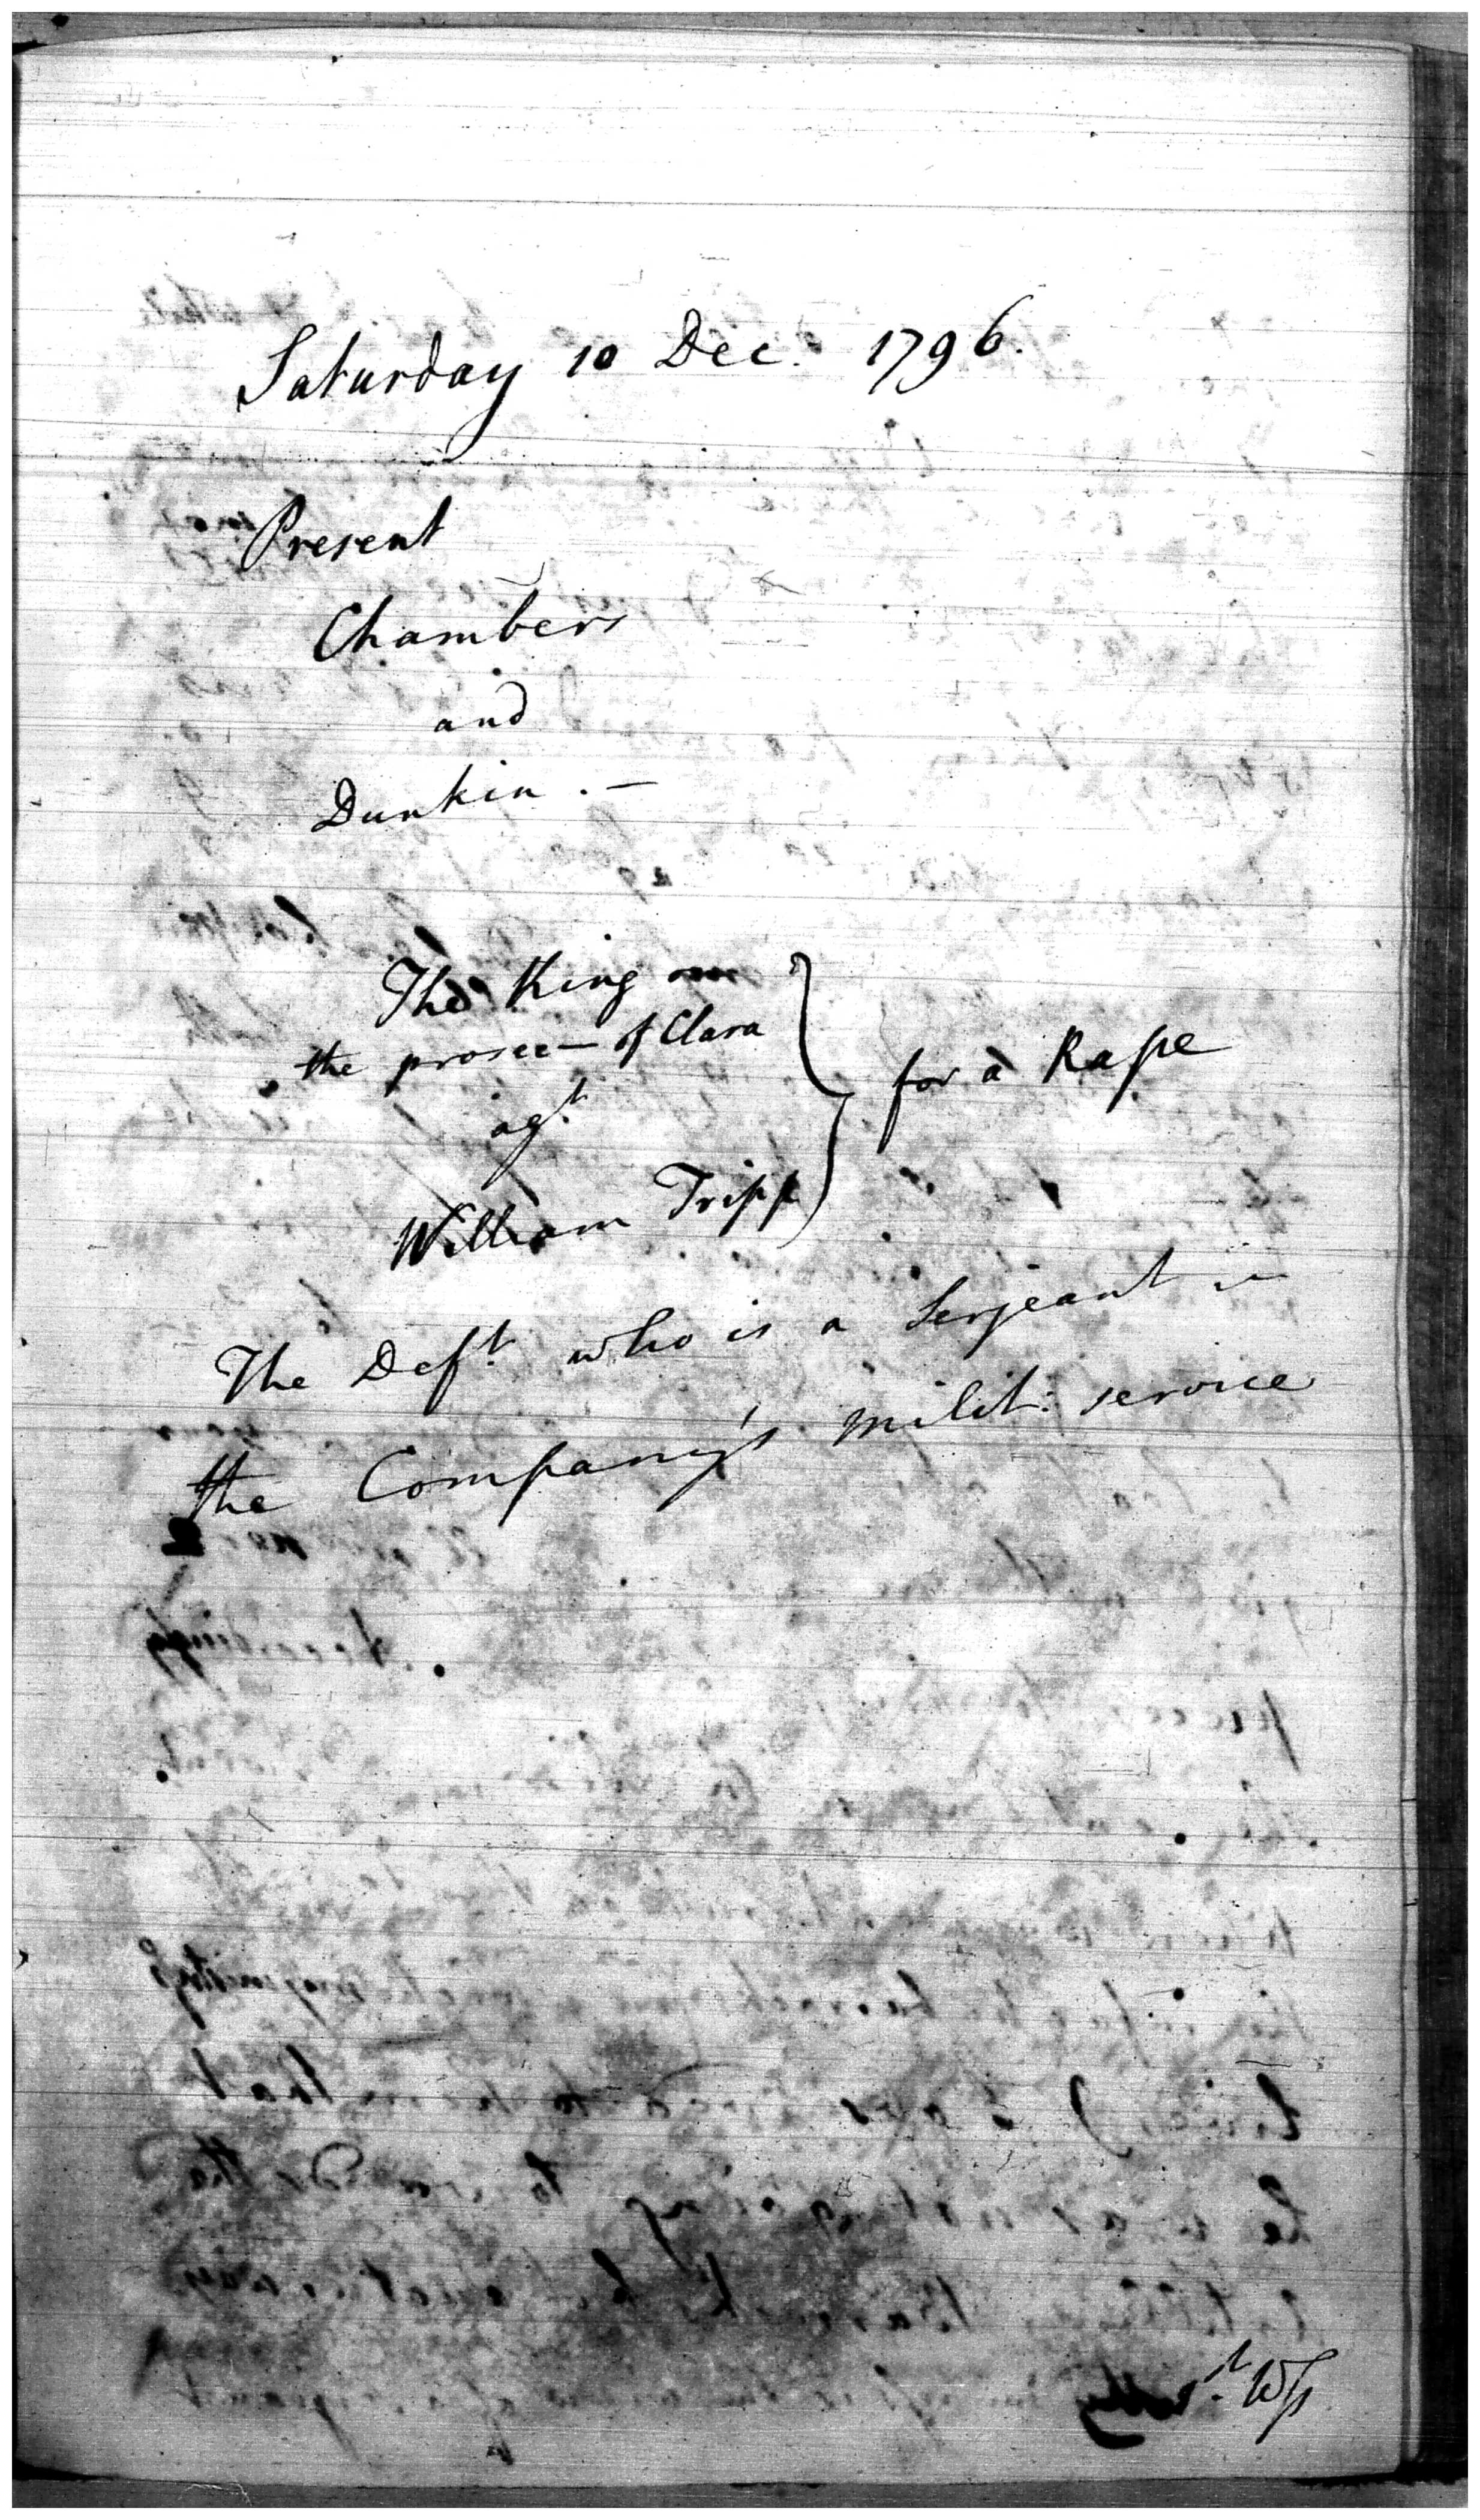 Saturday 10 Dec. 1796.
Present
Chambers
and
Dunkin. —
The King on
the prosec— of Clara
agt.
William Tripp
for a Rape
The Deft. who is a Serjeant in
the Company's milit: service
1st. Ws